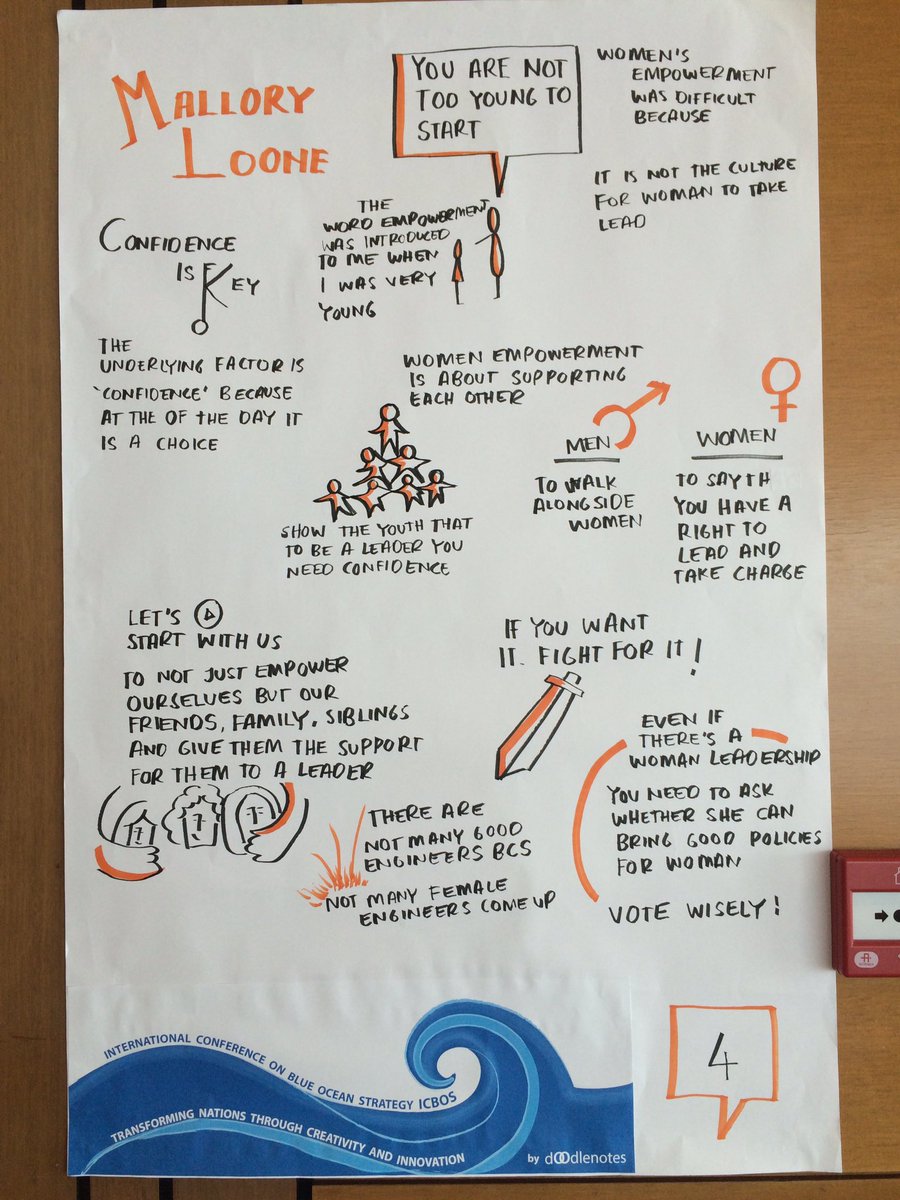 MALLORY
LOONE
YOU ARE NOT
TOO YOUNG TO
START
WOMEN'S
EMPOWERMENT
WAS DIFFICULT
BECAUSE
IT IS NOT THE CULTURE
FOR WOMAN TO TAKE
LEAD
THE
WORD EMPOWERMENT
WAS INTRODUCED
TO ME WHEN
I WAS VERY
YOUNG
CONFIDENCE
IS KEY
THE
UNDERLYING FACTOR IS
'CONFIDENCE' BECAUSE
AT THE OF THE DAY IT
IS A CHOICE
WOMEN EMPOWERMENT
IS ABOUT SUPPORTING
EACH OTHER
SHOW THE YOUTH THAT
TO BE A LEADER YOU
NEED CONFIDENCE
MEN
TO WALK
ALONGSIDE
WOMEN
WOMEN
TO SAYTH
YOU HAVE A
RIGHT TO
LEAD AND
TAKE CHARGE
LET'S
START WITH US
TO NOT JUST EMPOWER
OURSELVES BUT OUR
FRIENDS, FAMILY, SIBLINGS
AND GIVE THEM THE SUPPORT
FOR THEM TO A LEADER
IF YOU WANT
IT. FIGHT FOR IT!
THERE ARE
NOT MANY GOOD
ENGINEERS BCS
NOT MANY FEMALE
ENGINEERS COME UP
EVEN IF
THERE'S A
WOMAN LEADERSHIP
YOU NEED TO ASK
WHETHER SHE CAN
BRING GOOD POLICIES
FOR WOMAN
VOTE WISELY!
INTERNATIONAL CONFERENCE ON BLUE OCEAN STRATEGY ICBOS
TRANSFORMING NATIONS THROUGH CREATIVITY AND INNOVATION
by dOOdlenotes
4